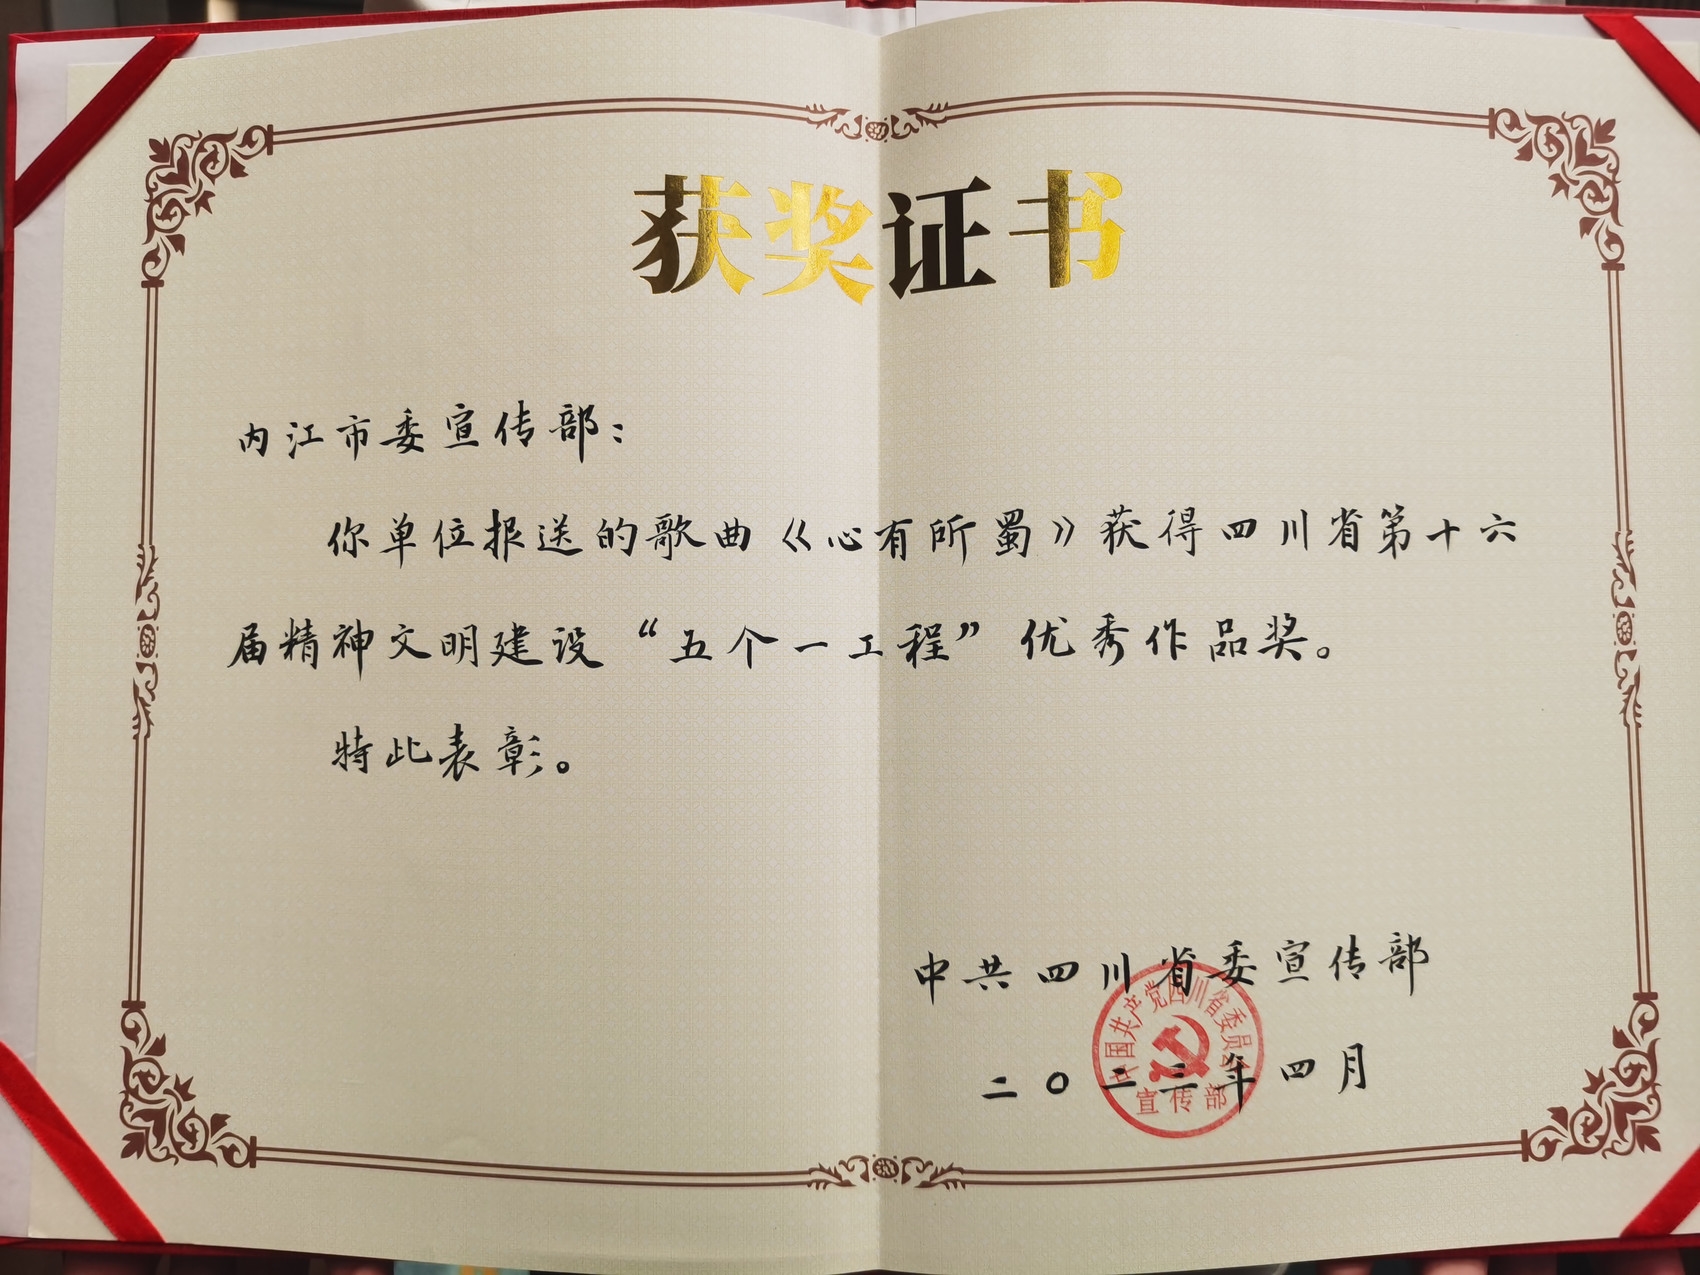 获奖证书
内江市委宣传部：
你单位报送的歌曲《心有所蜀》获得四川省第十六
届精神文明建设“五个一工程”优秀作品奖。
特此表彰。
中共四川省委宣传部
二〇二三年四月
中国共产党四川省委员会
宣传部